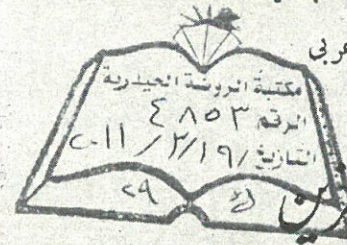 عربي
مكتبة الروضة الحيدرية
الرقم ٤٨٥٣
التاريخ ١٩/ ٣/ ٢٠١١
٢٩